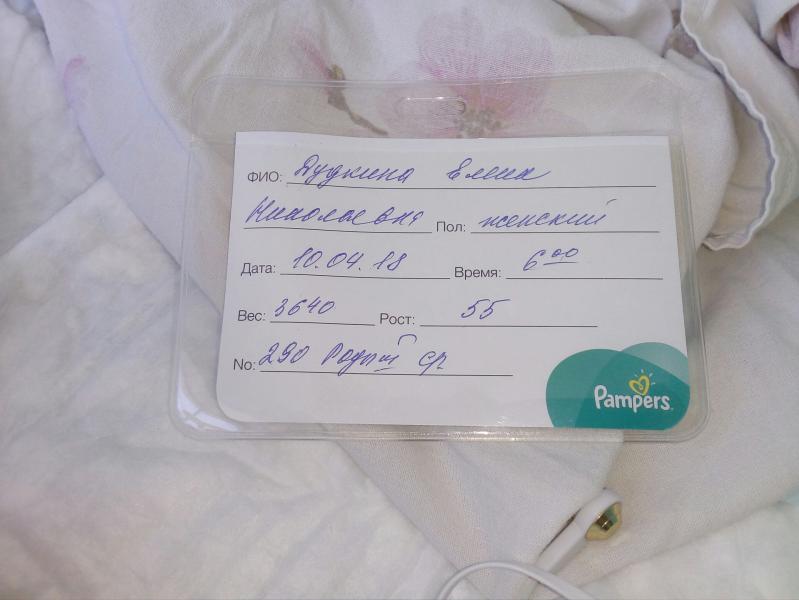 ФИО: Дудкина Елена
Николаевна Пол: женский
Дата: 10.04.18 Время: 6 00
Вес: 3640 Рост: 55
No: 290
Pampers